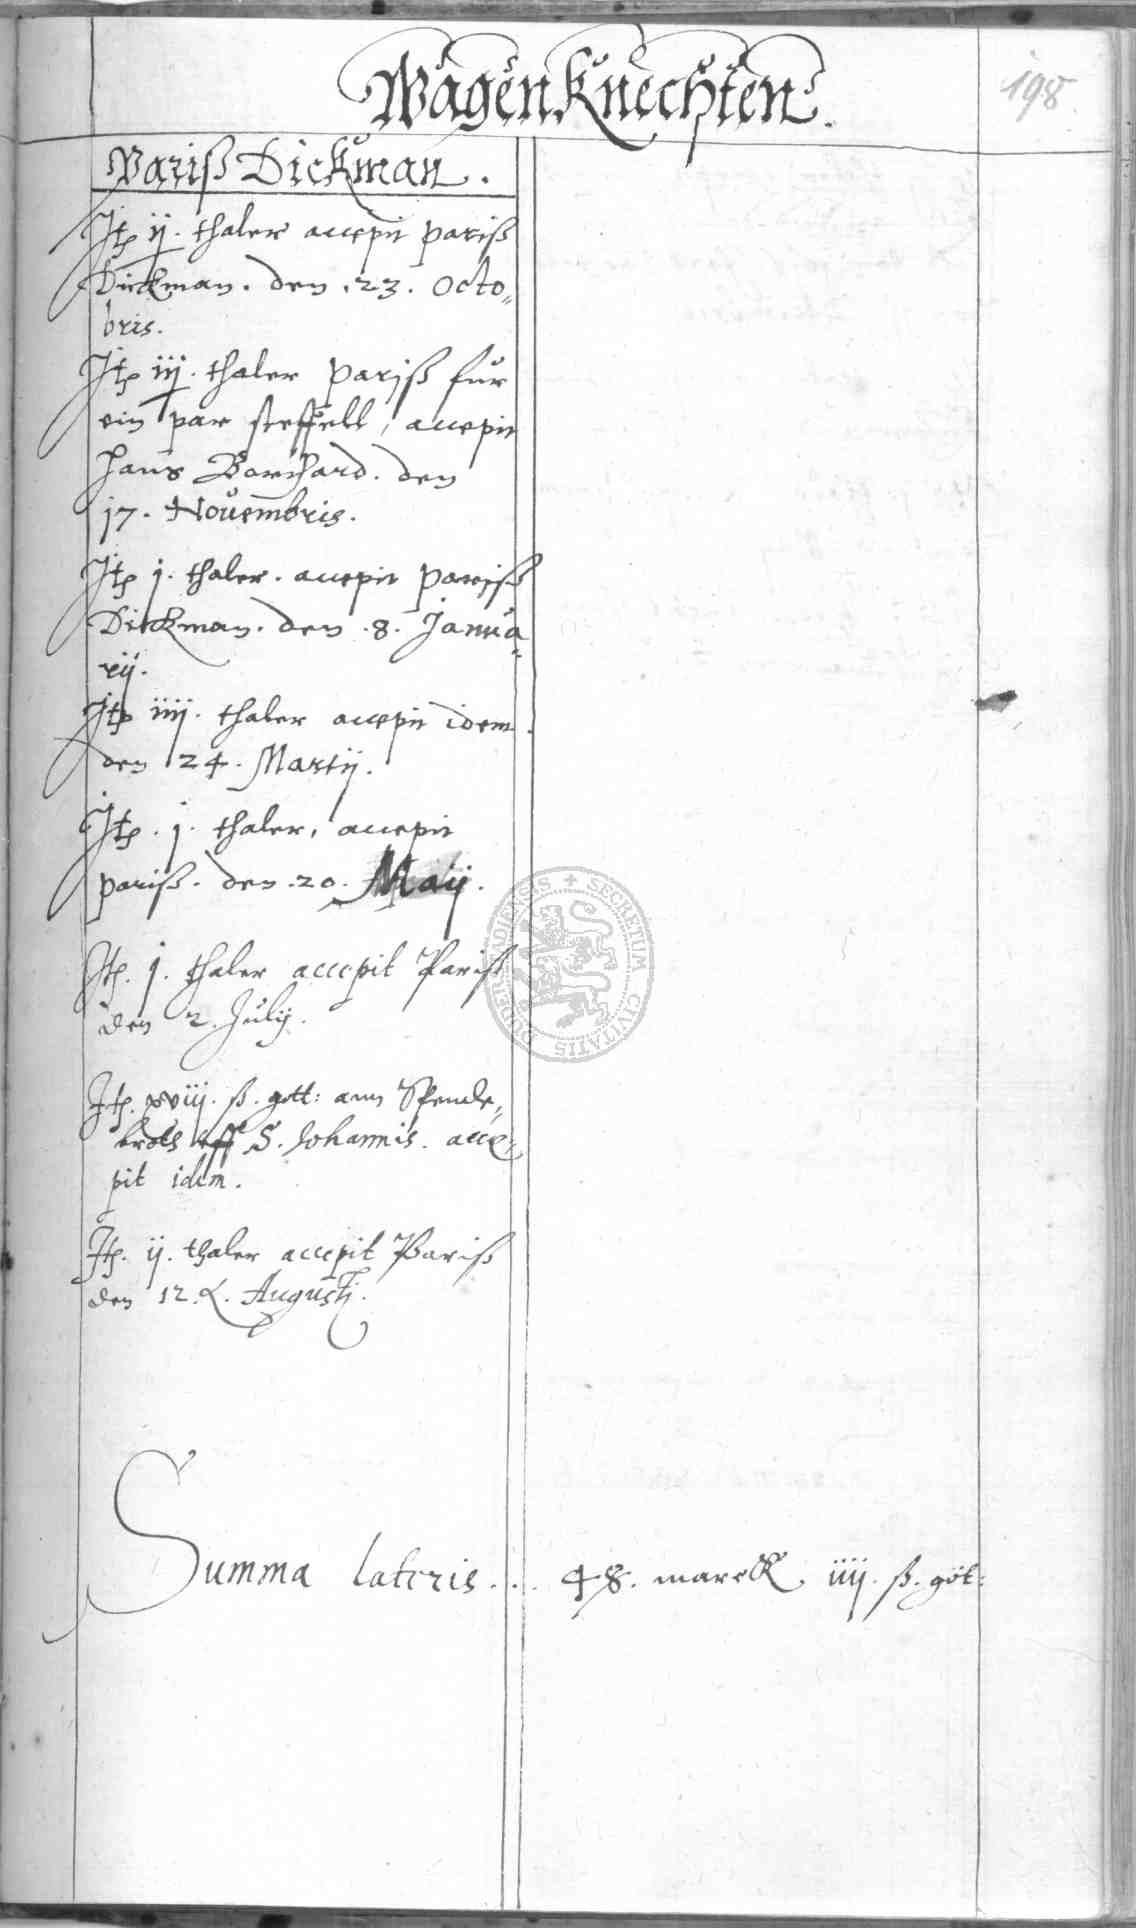 WagenKnechten.
198
Pariß Dickman.
Itp ij. thaler accepit pariß
Dickman. den .23. Octo„
bris.
Itp iij. thaler pariß fur
ein par steffell, accepit
Hans Borchard. den
17. Nouembris.
Itp j. thaler. accepit pariß
Dickman. den .8. Janua„
rij.
Itp iiij. thaler accepit idem.
den 24. Martij.
Itp. j. thaler, accepit
pariß. den .20. Maij.
Itp. j. thaler accepit Pariß
den 2. Julij.
Itp. xviij. ß. gott: ann Spende„
brots uff S. Johannis. acce„
pit idem.
Itp. ij. thaler accepit Pariß
den 12. Augustj.
Summa lateris... 48. marck iiij. ß. göt:
SECRETUM CIVITATIS DUDERSTADIENSIS